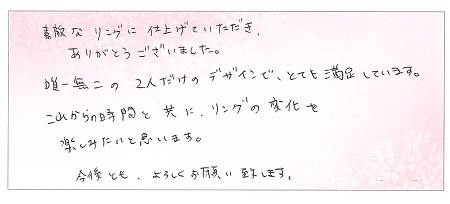 素敵なリングに仕上げていただき、
ありがとうございました。
唯一無二の2人だけのデザインで、とても満足しています。
これからの時間と共に、リングの変化を
楽しみたいと思います。
今後とも、よろしくお願い致します。